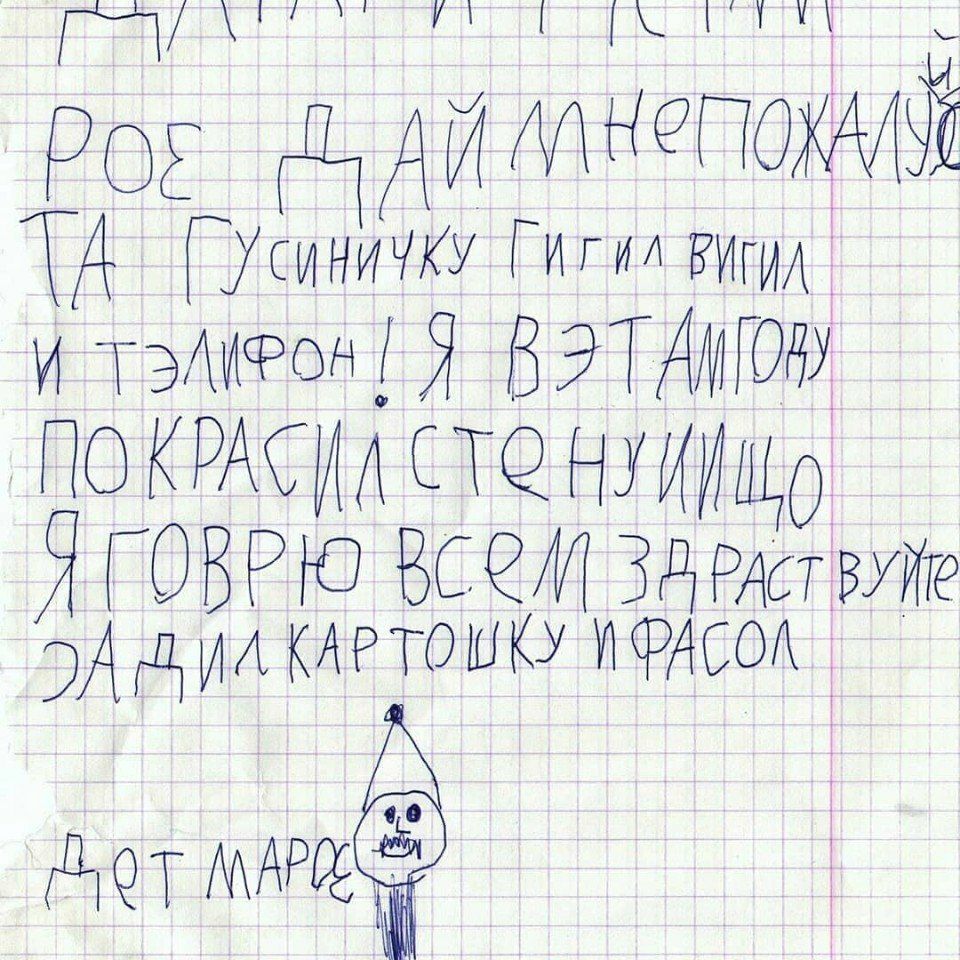 РОЗ ДАЙ МНЕ ПОХАЛУЙ
ТА ГУСИНИЧКУ ГИГИЛ ВИГИЛ
И ТЭЛИФОН! Я В ЭТАМ ГОДУ
ПОКРАСИЛ СТЕНУ И ИЩО
Я ГОВРЮ ВСЕМ ЗДРАСТВУЙТЕ
САДИЛ КАРТОШКУ И ФАСОЛ
ДЕТ МАРОЗ